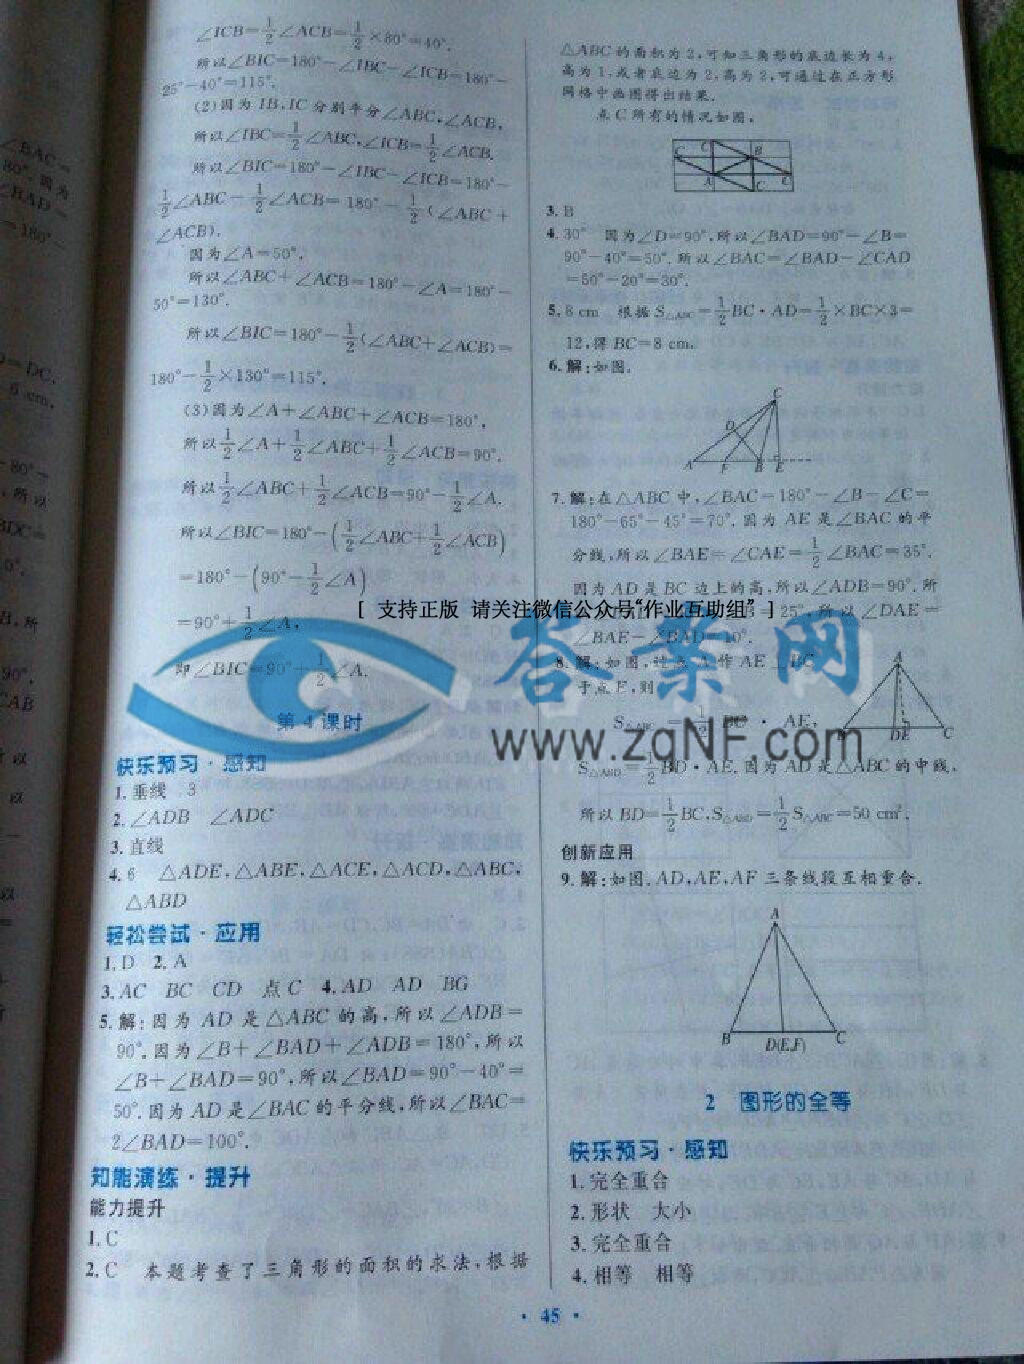 ∠ICB=1/2∠ACB=1/2×80°=40°.
所以∠BIC=180°-∠IBC-∠ICB=180°-
25°-40°=115°.
(2)因为 IB,IC 分别平分∠ABC,∠ACB,
所以∠IBC=1/2∠ABC,∠ICB=1/2∠ACB.
所以∠BIC=180°-∠IBC-∠ICB=180°-
1/2∠ABC-1/2∠ACB=180°-1/2(∠ABC+
∠ACB).
因为∠A=50°,
所以∠ABC+∠ACB=180°-∠A=180°-
50°=130°.
所以∠BIC=180°-1/2(∠ABC+∠ACB)=
180°-1/2×130°=115°.
(3)因为∠A+∠ABC+∠ACB=180°,
所以1/2∠A+1/2∠ABC+1/2∠ACB=90°.
所以1/2∠ABC+1/2∠ACB=90°-1/2∠A.
所以∠BIC=180°-(1/2∠ABC+1/2∠ACB)
=180°-(90°-1/2∠A)
=90°+1/2∠A,
即∠BIC=90°+1/2∠A.
第4课时
快乐预习·感知
1.垂线 3
2.∠ADB ∠ADC
3.直线
4.6 △ADE,△ABE,△ACE,△ACD,△ABC,
△ABD
轻松尝试·应用
1.D 2.A
3.AC BC CD 点C 4.AD AD BG
5.解:因为 AD 是△ABC 的高,所以∠ADB=
90°.因为∠B+∠BAD+∠ADB=180°,所以
∠B+∠BAD=90°,所以∠BAD=90°-40°=
50°.因为 AD 是∠BAC 的平分线,所以∠BAC=
2∠BAD=100°.
知能演练·提升
能力提升
1.C
2.C 本题考查了三角形的面积的求法,根据
△ABC 的面积为2,可知三角形的底边长为4,
高为1,或者底边为2,高为2,可通过在正方形
网格中画图得出结果.
点 C 所有的情况如图.
C C B
A C C
3.B
4.30° 因为∠D=90°,所以∠BAD=90°-∠B=
90°-40°=50°.所以∠BAC=∠BAD-∠CAD
=50°-20°=30°.
5.8 cm 根据 S△ABC=1/2BC·AD=1/2×BC×3=
12,得 BC=8 cm.
6.解:如图.
C
D
A F B E
7.解:在△ABC 中,∠BAC=180°-∠B-∠C=
180°-65°-45°=70°.因为 AE 是∠BAC 的平
分线,所以∠BAE=∠CAE=1/2∠BAC=35°.
因为 AD 是 BC 边上的高,所以∠ADB=90°.所
25°,所以∠DAE=
∠BAE-∠BAD=10°.
[ 支持正版 请关注微信公众号“作业互助组” ]
答案网
www.zqNF.com
8.解:如图,过点 A 作 AE⊥BC
于点 E,则
S△ABC=1/2BC·AE,
A
B DE C
S△ABD=1/2BD·AE.因为 AD 是△ABC 的中线,
所以 BD=1/2BC,S△ABD=1/2S△ABC=50 cm².
创新应用
9.解:如图.AD,AE,AF 三条线段互相重合.
A
B D(E,F) C
2 图形的全等
快乐预习·感知
1.完全重合
2.形状 大小
3.完全重合
4.相等 相等
· 45 ·